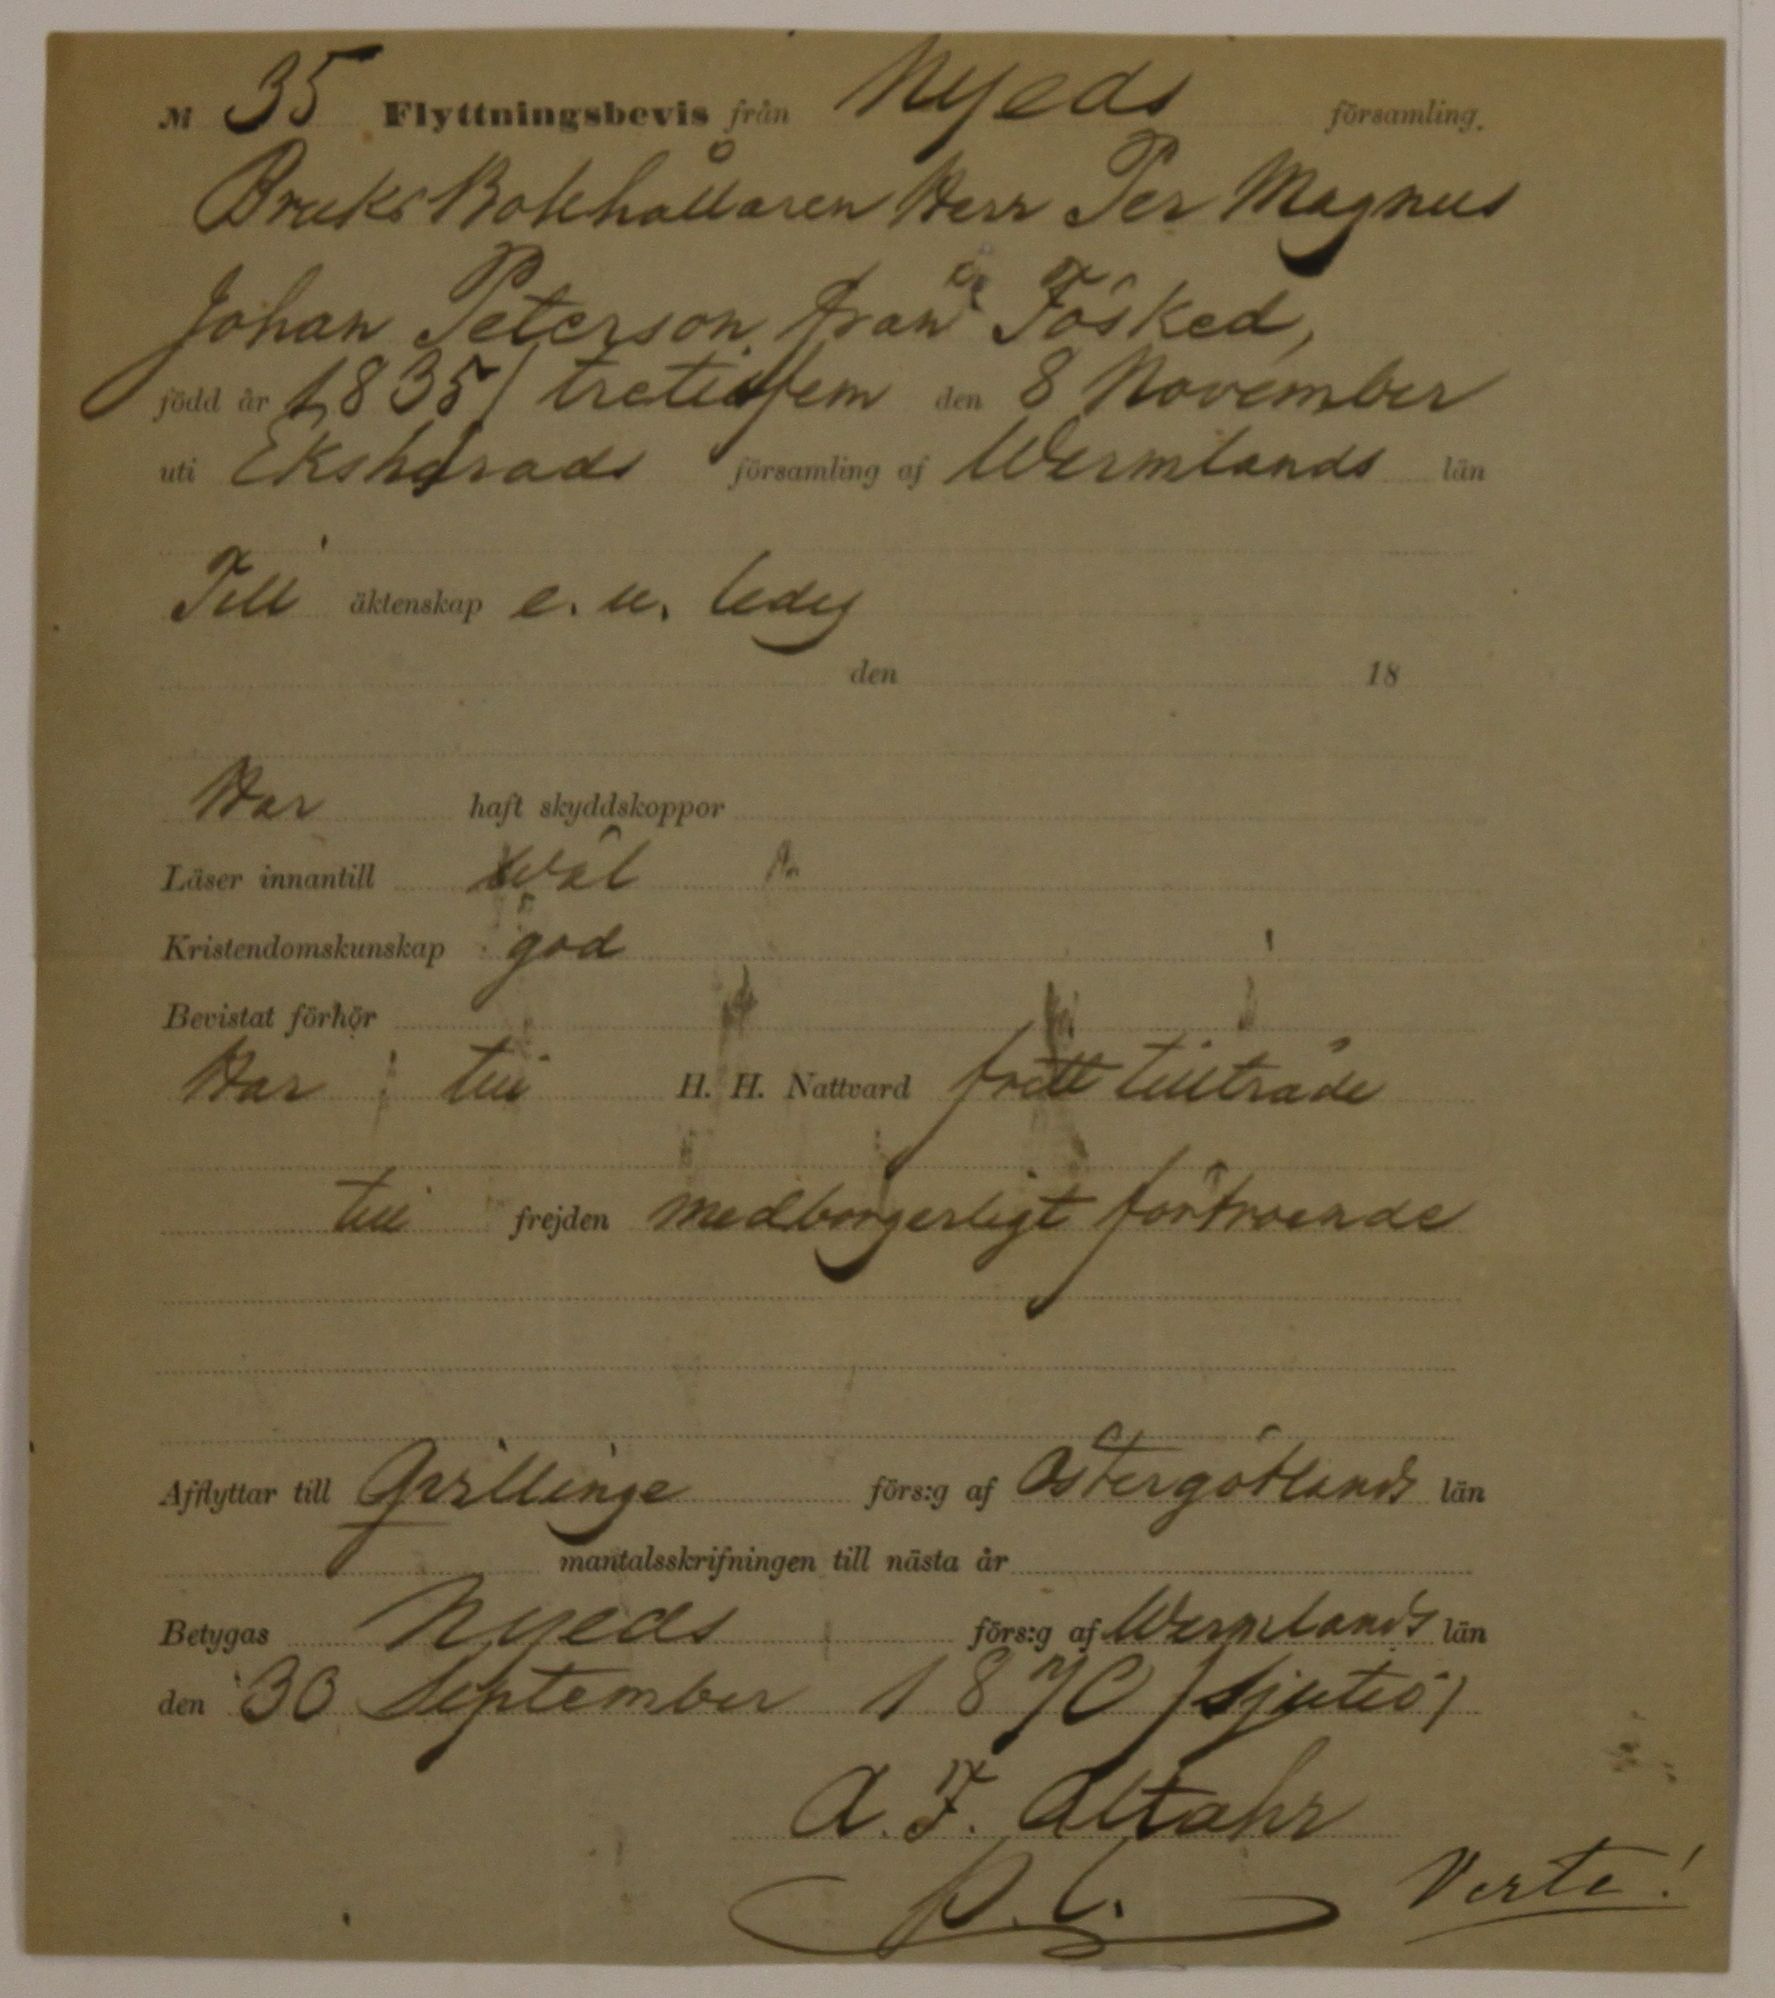 № 35 Flyttningsbevis från Nyeds församling.
Bruks Bokhållaren Herr Per Magnus
Johan Peterson från Fösked,
född år 1835/ tretiofem den 8 November
uti Ekshärads församling af Wermlands län
Till äktenskap e. u. ledig
den 18
Har haft skyddskoppor
Läser innantill wäl
Kristendomskunskap god
Bevistat förhör
Har till H. H. Nattvard fritt tillträde
till frejden medborgerligt förtroende
Afflyttar till Qvillinge förs:g af Östergötlands län
mantalsskrifningen till nästa år
Betygas Nyeds förs:g af Wermlands län
den 30 September 1870 /sjutio/
A. F. Altahr
p. l. Verte!